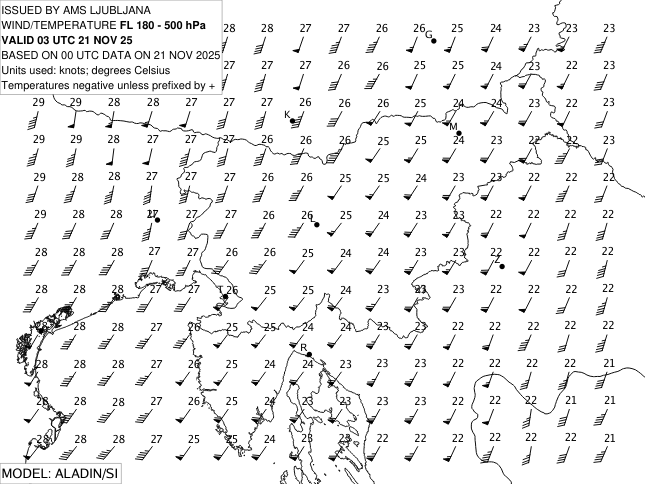 ISSUED BY AMS LJUBLJANA
WIND/TEMPERATURE FL 180 - 500 hPa
VALID 03 UTC 21 NOV 25
BASED ON 00 UTC DATA ON 21 NOV 2025
Units used: knots; degrees Celsius
Temperatures negative unless prefixed by +
28 28 27 27 26 26 25 24 23 23 23
G
27 27 27 26 26 25 25 24 23 22 23
29 29 28 28 27 27 27 26 26 26 25 24 24 23 22 23
K
M
29 29 28 28 27 27 26 26 26 25 25 24 23 22 23 23
29 29 28 27 27 27 26 26 25 25 24 23 23 22 22 22
29 28 28 27 27 27 26 26 25 24 23 23 22 22 22 22
L
28 28 28 27 27 26 26 25 24 24 23 23 22 22 22 22
Z
28 28 28 27 27 26 25 25 24 23 23 22 22 22 22 22
T
28 28 27 27 26 25 25 24 24 23 23 22 22 22 22 22
R
28 28 28 27 26 25 24 24 23 23 23 22 22 22 22 21
28 28 27 26 25 24 23 23 23 22 22 22 22 21 21
28 28 28 27 25 25 24 23 23 22 22 22 22 22 22 21
MODEL: ALADIN/SI